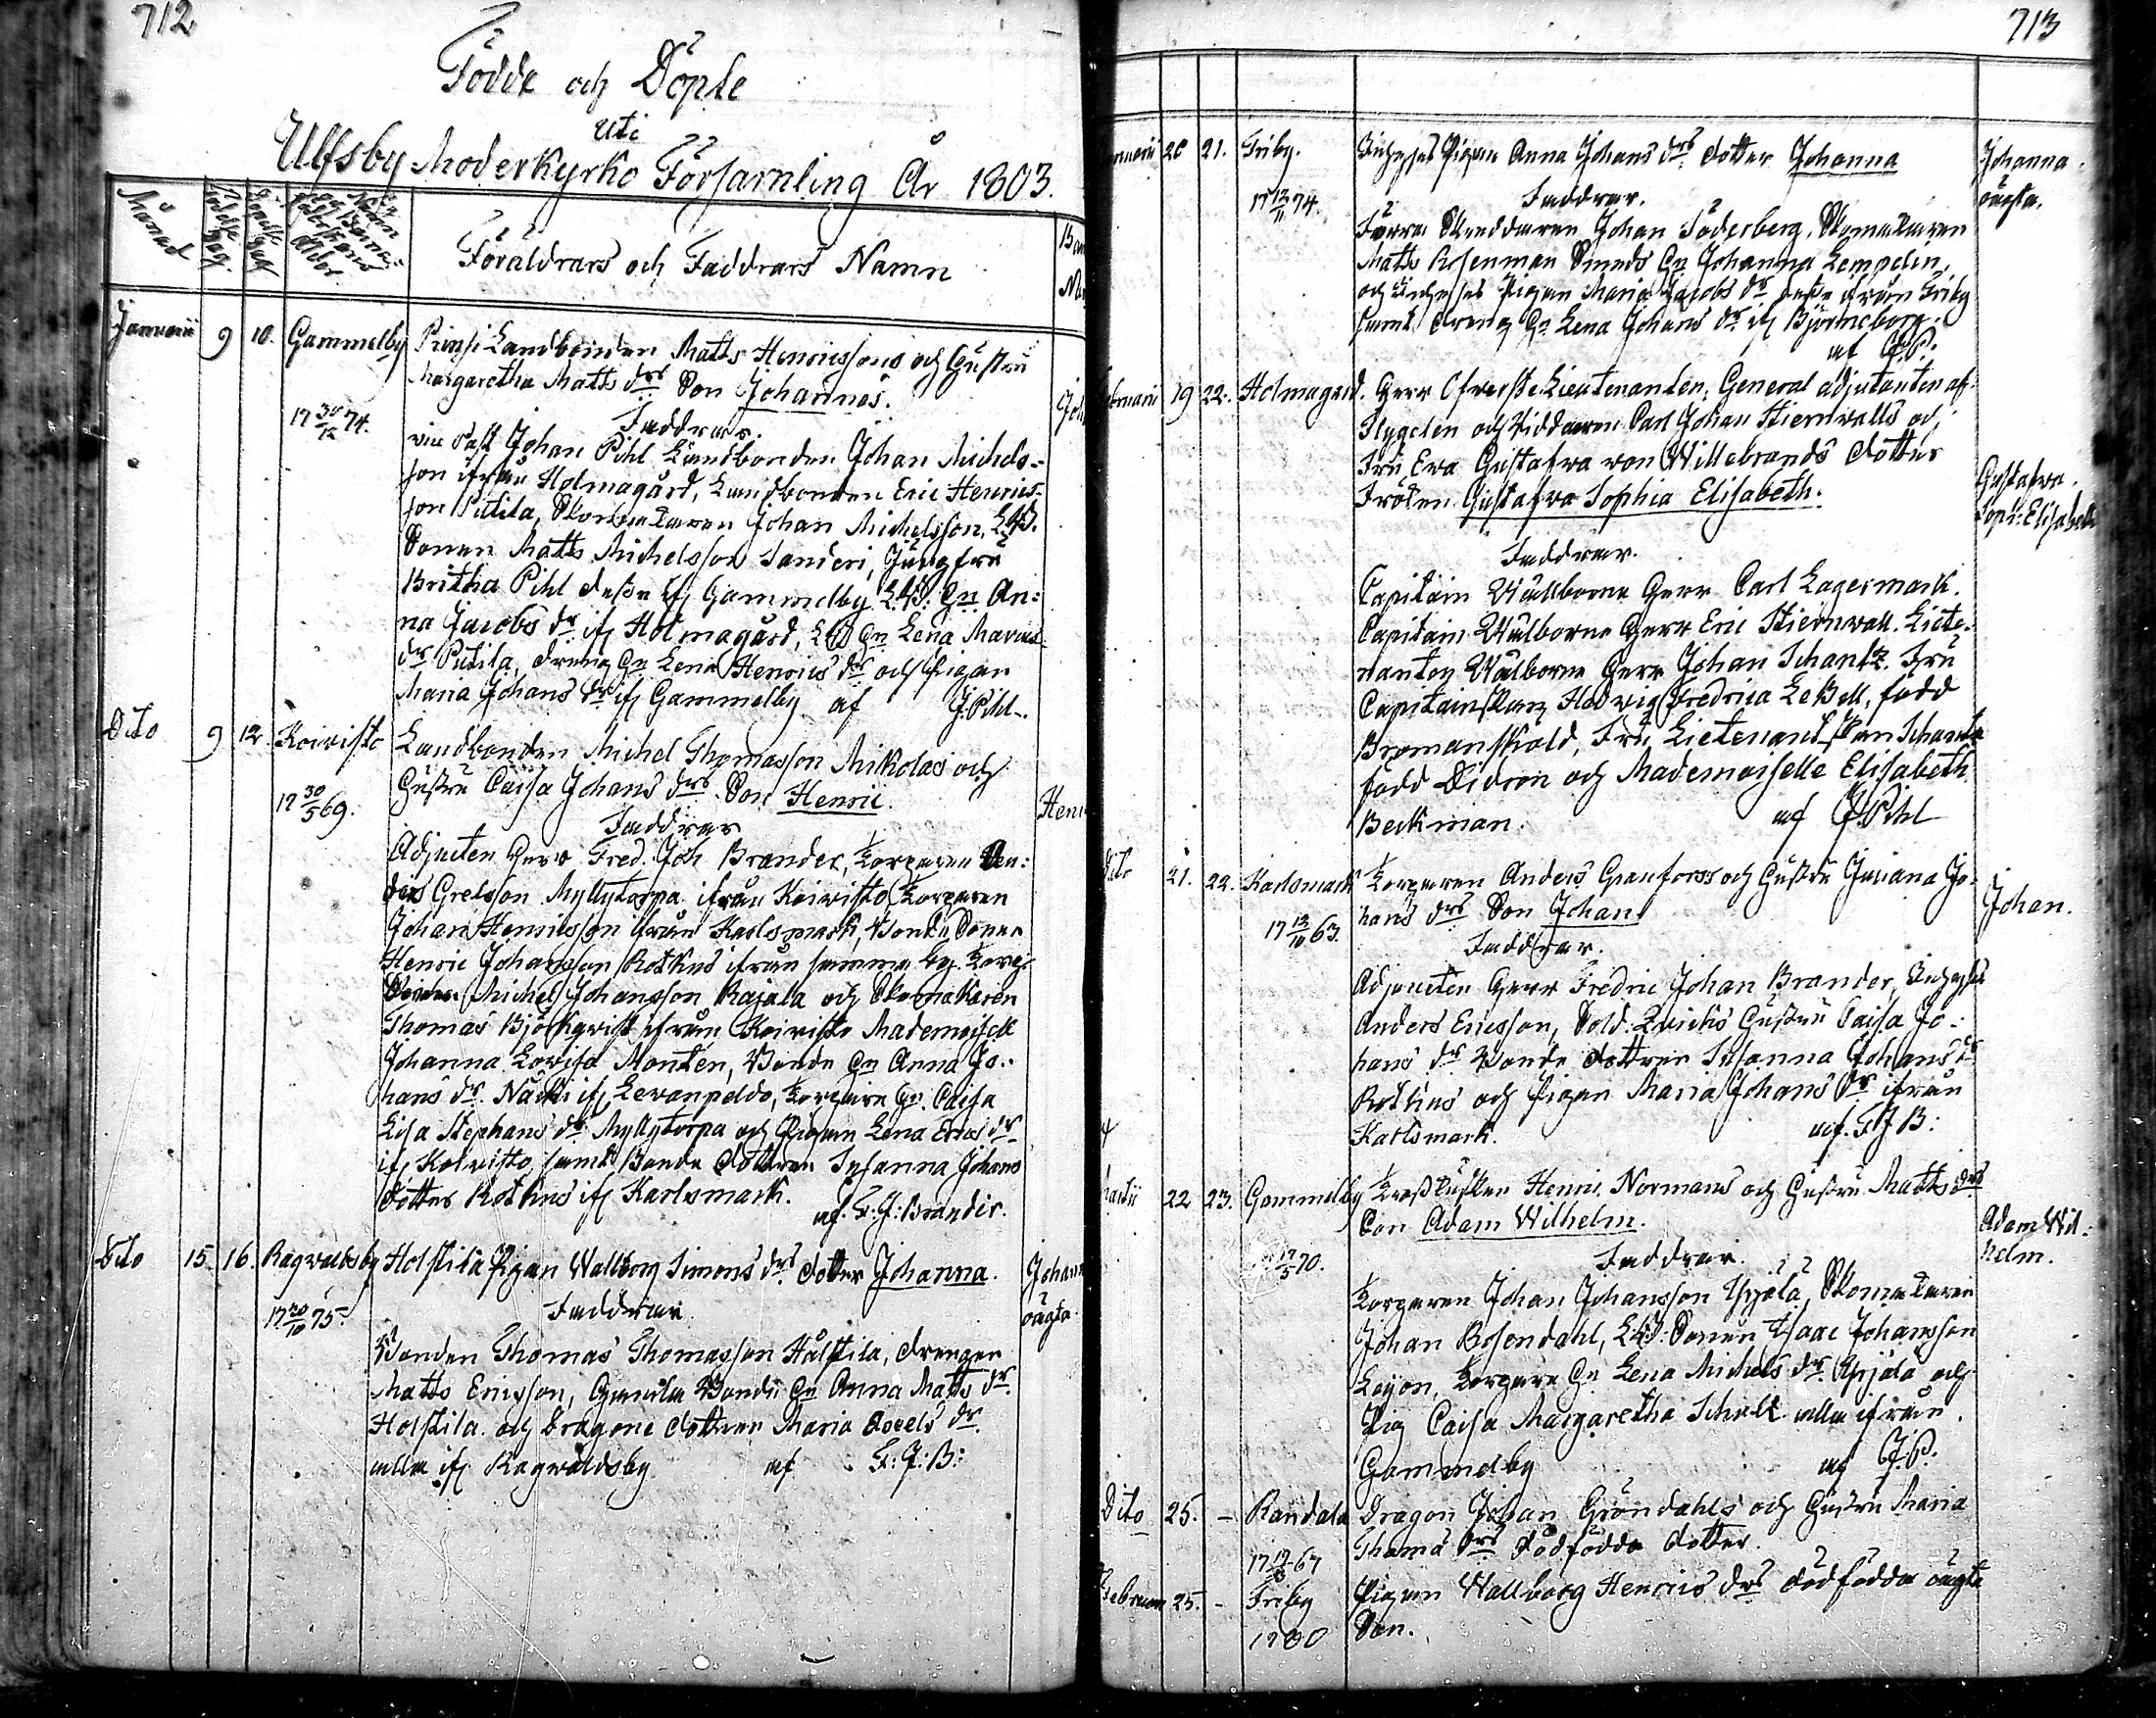 712
Födde och Döpte
Uti
Ulfsby Moderkyrko Församling År 1803.
Månad
Födelse Dag.
Döpelse Dag
Föräldrars och Faddrars Namn
Januarii 9 10. Gammelby Landbonden Matts Henricssons och Hustru
Margaretha Matts drs Son Johannes.
17 30/12 74.
Faddrar.
Johan Pihl Landbonden Johan Michels-
son ifrån Holmagård, Landbonden Eric Henrics-
son Putila, Skomakaren Johan Michelsson, LB.
Sonen Matts Michelsson Sanderi, Jungfru
Britha Pihl desse if Gammelby LB: Hu An-
na Jacobs dr if Holmagård, LB Hu Lena
dr Putila, dreng Hu Lena Henrics dr och Pigan
Maria Johans dr if Gammelby af J. Pihl.
Dito 9 12. Koivisto Landbonden Michel Thomasson Mikolas och
Hustru Caisa Johans drs Son Henric.
17 30/5 69.
Henr
Faddrar
Adjuncten Herr Fred. Joh Brander, Torparen An-
ders Grelsson Myllytorpa ifrån Koivisto, Torparen
Johan Henricsson ifrån Karlsmark, Bonde Sonen
Henric Johansson Rotkus ifrån samma by. Torp
Michel Johansson Rajala och Skomakaren
Thomas Björkqvist ifrån Koivisto Mademoiselle
Johanna Lovisa Montén, Bonde Hu Anna Jo-
hans dr. Näcki if Levanpeldo, Torpare Hu. Caisa
Lisa Stephans dr Myllytorpa och Pigan Lena Erics dr
if Koivisto, samt Bonde dottren Susanna Johans
dotter Rotkus if Karlsmark. af. F. J: Brander.
Dito 15. 16. Ragwaldsby Holstila Pigan Wallborg Simons drs dotter Johanna.
Johann
oägta
17 20/10 75
Faddrar
Bonden Thomas Thomasson Hålstila, drengen
Matts Ericsson, Gamla Bonde Hu Anna Matts dr
Holstila och Dragone dottren Maria Axels dr
alla if Ragwaldsby af F: J: B:
713
20 21. Friby. Inhyses Pigan Anna Johans drs dotter Johanna
Johanna
oägta.
17 12/11 74.
Faddrar.
Förra Skräddaren Johan Söderberg, Skomakaren
Matts Rosenman Smeds Hu Johanna Lempelin,
och Inhyses Pigan Maria Jacobs dr desse ifrån Friby
samt dreng Hu Lena Johans dr if Björneborg.
af J.P:
19 22. Holmagård. Herr Öfverste Lieutenanten, General adjutanten af
Flygelen och Riddaren Carl Johan Stiernwalls och
Fru Eva Gustafva von Willebrands dotter
Fröken Gustafva Sophia Elisabeth.
Gustafva
Soph: Elisabeth
Faddrar.
Capitain Wälborne Herr Carl Lagermark.
Capitain Wälborne Herr Eric Stiernwall. Liete-
nanten Wälborne Herr Johan Schantz. Fru
Capitainskan Hedvig Fredrica LeBell, född
Bromanskold, Fru Lietenantskan Schantz
född Didron och Mademoiselle Elisabeth
Beckman. af J. Pihl
Dito 21. 22. Karlsmark Torparen Anders Granfors och Hustru Juliana Jo-
hans drs Son Johan
Johan.
17 12/10 63.
Faddrar.
Adjuncten Herr Fredric Johan Brander, Inhyses
Anders Ericsson, Sold. Hustru Caisa Jo-
hans dr Bonde dottren Susanna Johans dr
Rotkus och Pigan Maria Johans dr ifrån
Karlsmark. af. F J B:
22 23. Gammelby Henric Normans och Hustru Matts drs
Son Adam Wilhelm.
Adam Wil-
helm.
Faddrar.
Torparen Johan Johansson Ypjälä, Skomakaren
Johan Rosendahl, LB: Sonen Isaac Johansson
Leijon, Torpare Hu Lena Michels dr Ypjälä och
Pig Caisa Margaretha alla ifrån
Gammelby af J.P.
Dito 25. - Randala Dragon Johan Gröndahls och Hustru Maria
Thoma drs dödfödda dotter.
25. - Friby Pigan Wallborg Henrics drs dödfödda oägta
Son.